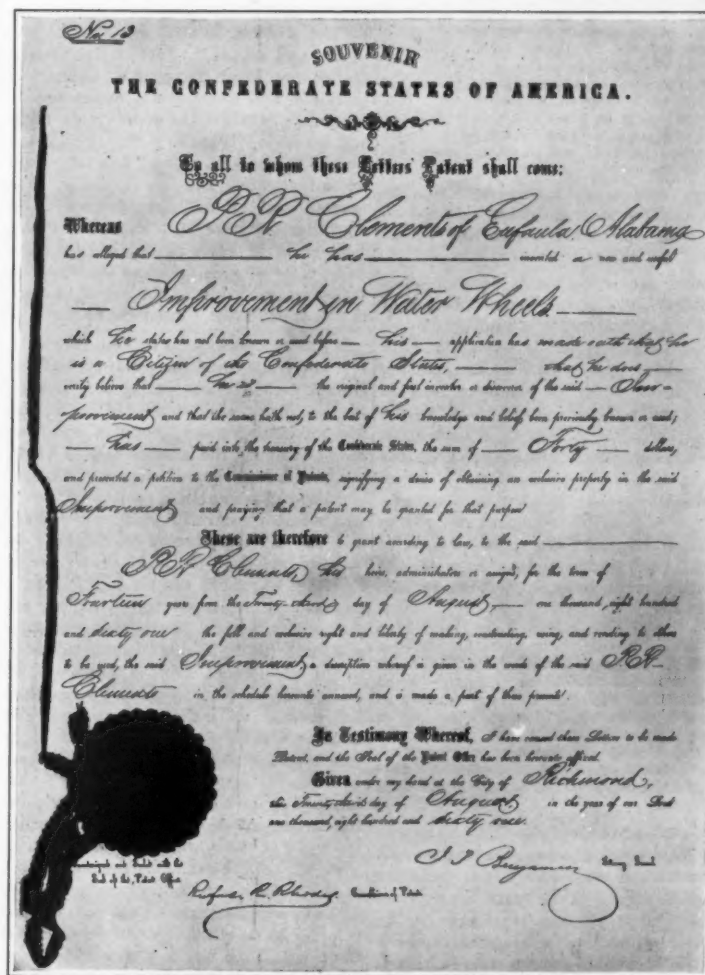 No 13
SOUVENIR
THE CONFEDERATE STATES OF AMERICA.
To all to whom these Letters Patent shall come:
Whereas Clements of Eufaula, Alabama
has alleged that he has invented a new and useful
Improvement in Water Wheels
which he states has not been known or used before his application has made oath that he
is a Citizen of the Confederate States, that he does
verily believe that he is the original and first inventor or discoverer of the said Im-
provement and that the same hath not, to the best of his knowledge and belief, been previously known or used;
has paid into the treasury of the Confederate States, the sum of Forty dollars,
and presented a petition to the Commissioner of Patents, signifying a desire of obtaining an exclusive property in the said
Improvement and praying that a patent may be granted for that purpose
These are therefore to grant according to law, to the said
Clements, his heirs, administrators or assigns, for the term of
Fourteen years from the Twenty-third day of August, one thousand, eight hundred
and sixty one the full and exclusive right and liberty of making, constructing, using, and vending to others
to be used, the said Improvement a description whereof is given in the words of the said
Clements in the schedule hereunto annexed, and is made a part of these presents.
In Testimony Whereof, I have caused these Letters to be made
Patent, and the Seal of the Patent Office has been hereunto affixed.
Given under my hand at the City of Richmond,
this Twenty third day of August in the year of our Lord
one thousand, eight hundred and sixty one.
Benjamin
Countersigned and Sealed with the
Seal of the Patent Office
Rufus R. Rhodes Commissioner of Patents